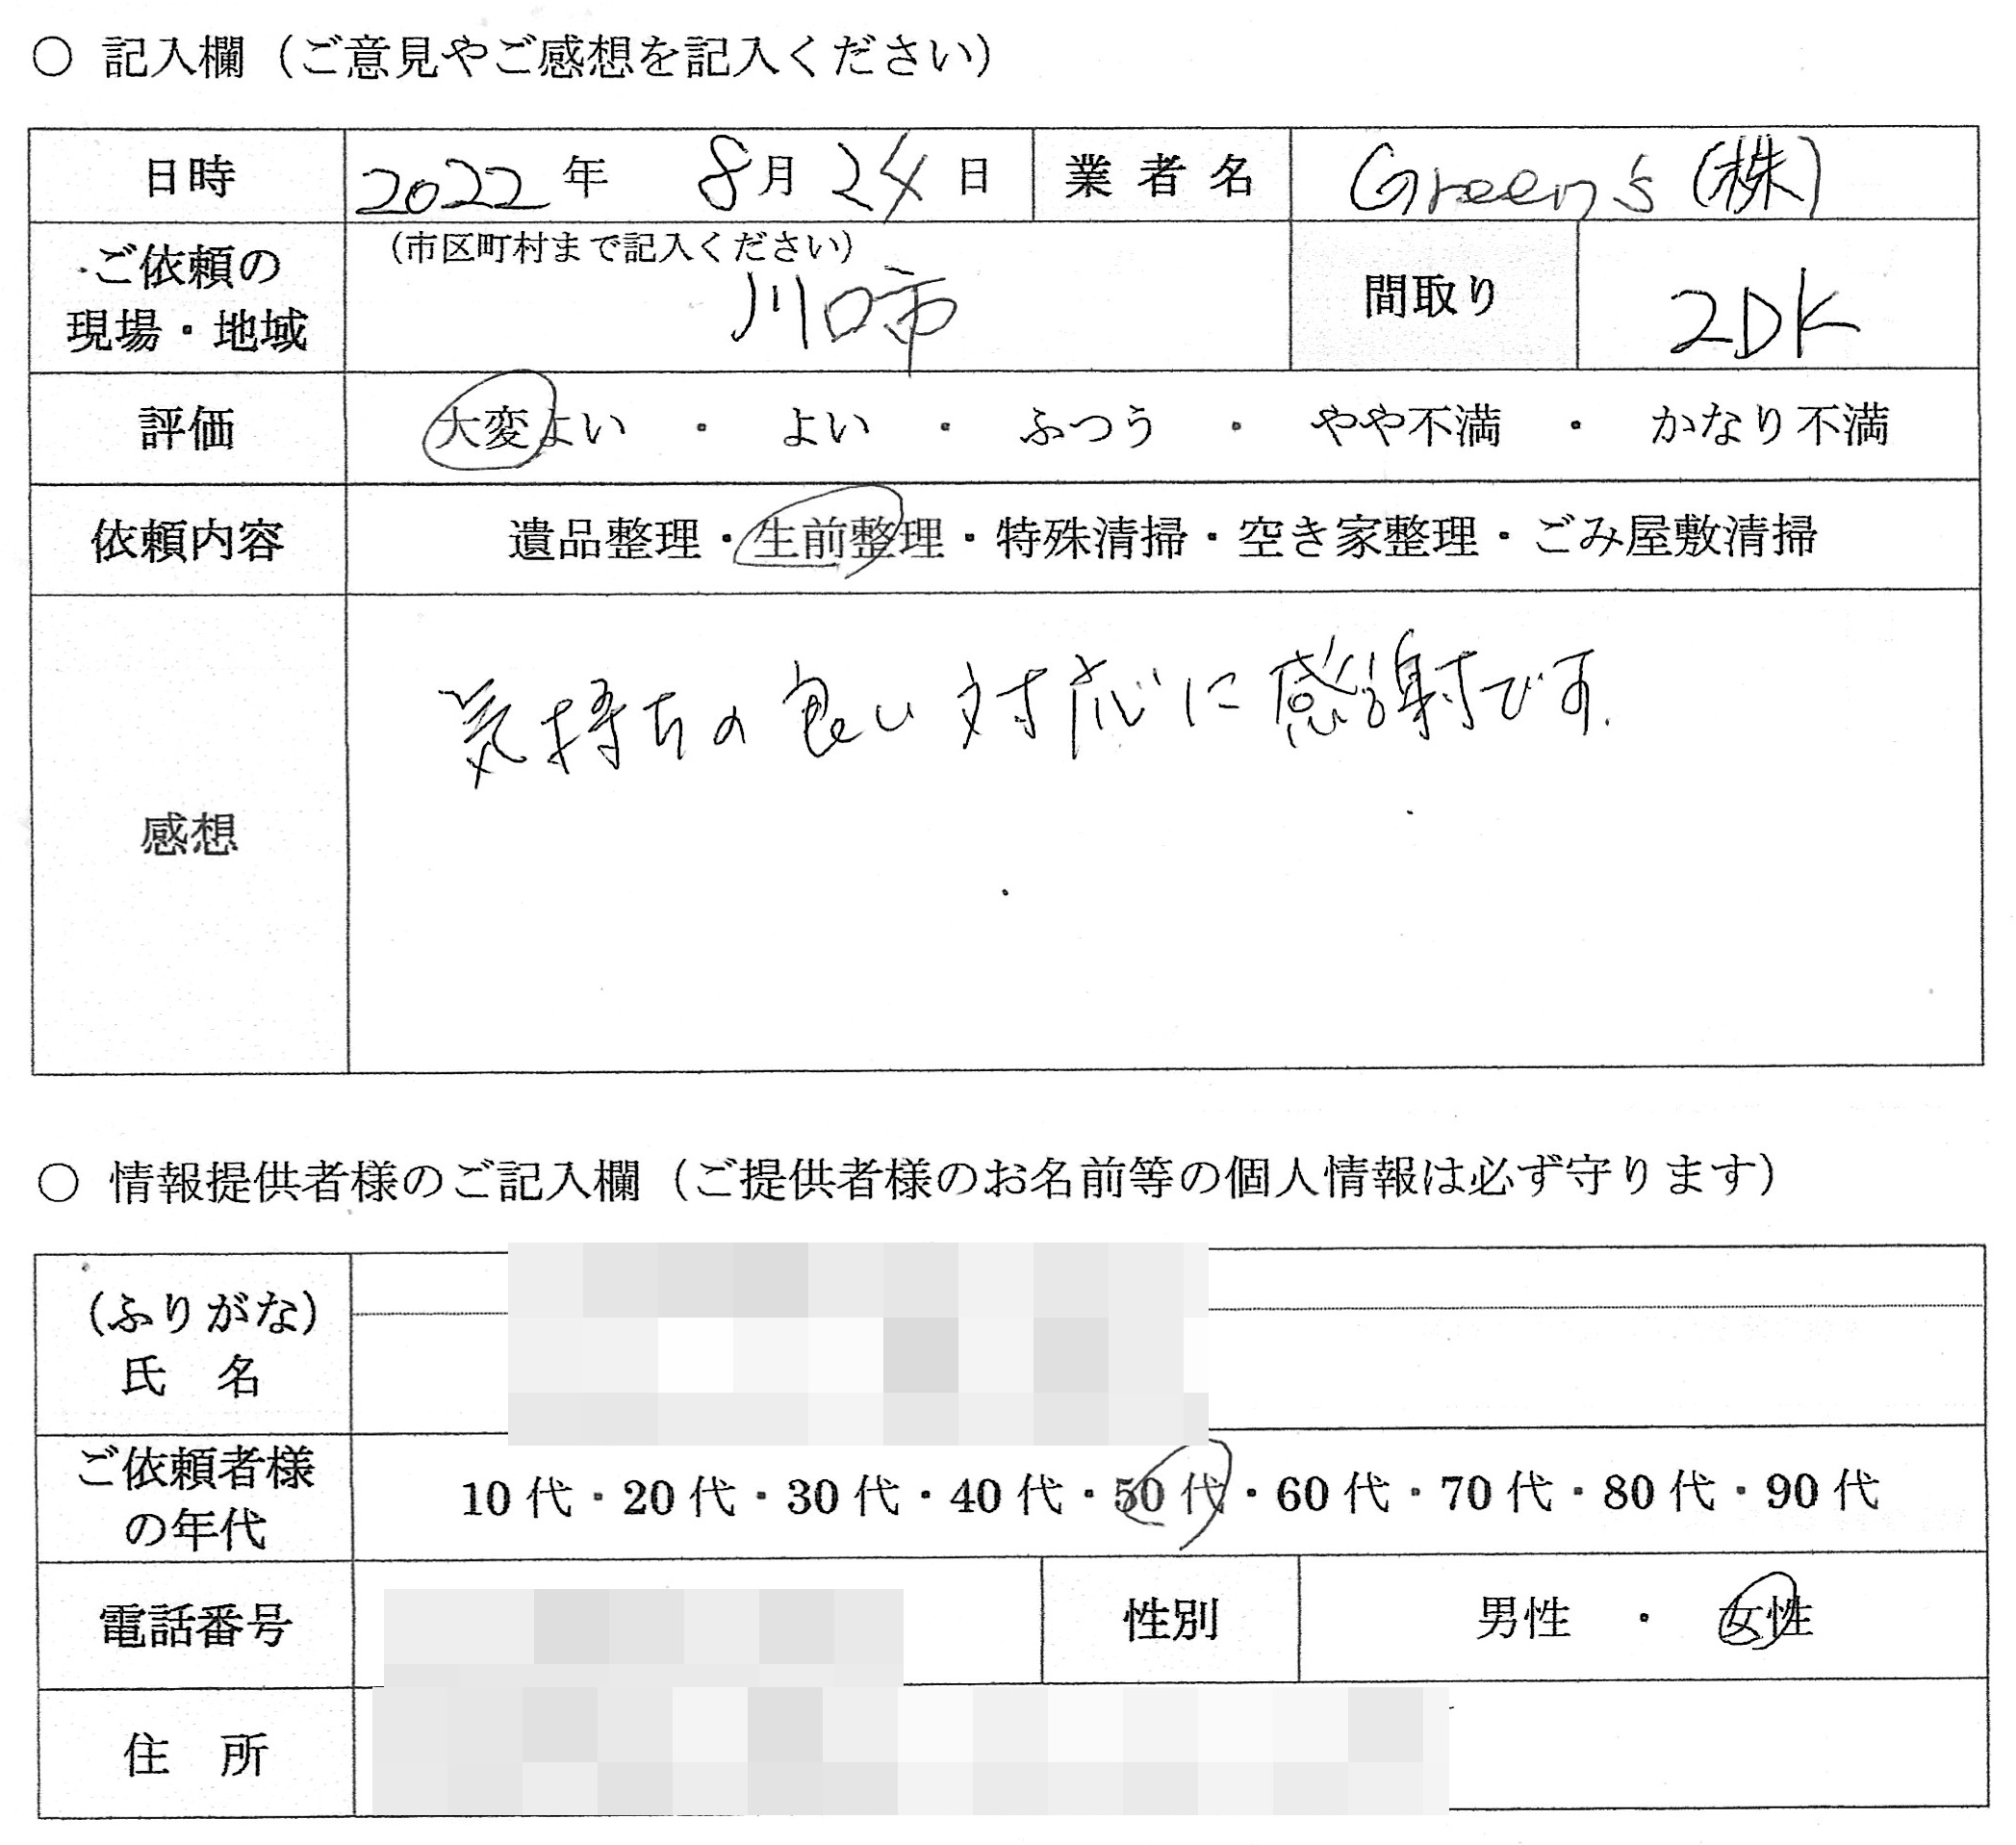 ○ 記入欄（ご意見やご感想を記入ください）
日時 2022 年 8月 24 日 業者名 Green's (株)
ご依頼の
現場・地域
（市区町村まで記入ください）
川口市
間取り 2DK
評価 大変よい ・ よい ・ ふつう ・ やや不満 ・ かなり不満
依頼内容 遺品整理・生前整理・特殊清掃・空き家整理・ごみ屋敷清掃
感想
気持ちの良い対応に感謝です.
○ 情報提供者様のご記入欄（ご提供者様のお名前等の個人情報は必ず守ります）
（ふりがな）
氏 名
ご依頼者様
の年代
10 代・20 代・30 代・40 代・50 代・60 代・70 代・80 代・90 代
電話番号 性別 男性 ・ 女性
住 所